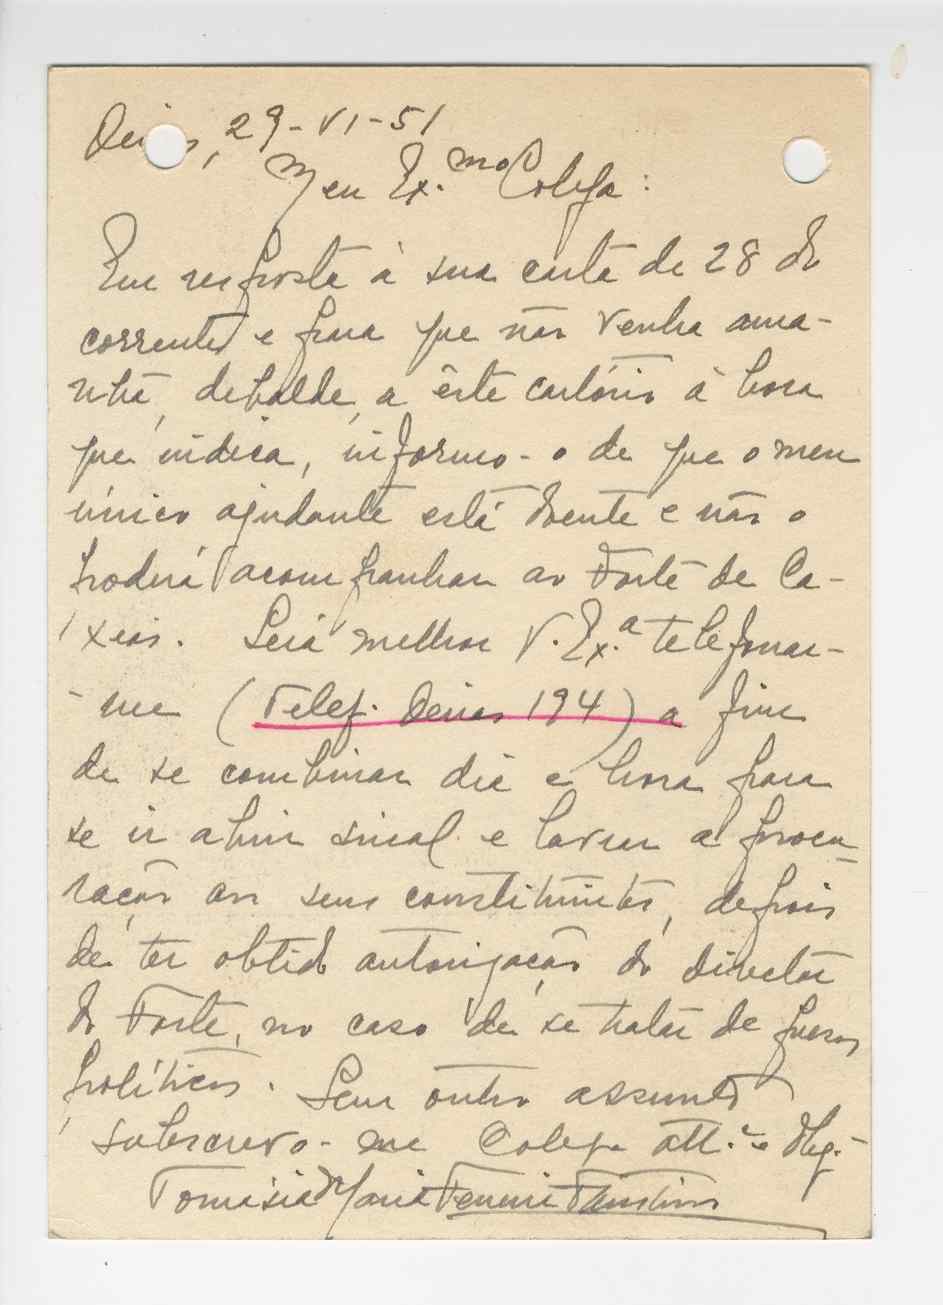 Oeiras, 29-VI-51
Meu Ex.mo Colega:
Em resposta à sua carta de 28 do
corrente e para que não venha ama-
nhã, debalde, a êste cartório à hora
que indica, informo-o de que o meu
único ajudante está doente e não o
poderá acompanhar ao Forte de Ca-
xias. Será melhor V. Ex.a telefonar-
-me (Telef. Oeiras 194) a fim
de se combinar dia e hora para
se ir abrir sinal e lavrar a procu-
ração aos seus constituintes, depois
de ter obtido autorização do director
do Forte, no caso de se tratar de presos
políticos. Sem outro assunto
subscrevo-me Colega att.º e obg.
Tomásia Maria